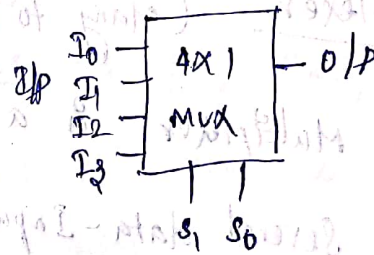 I0
I/P
I1
I2
I3
4X1
MUX
O/P
S1 S0